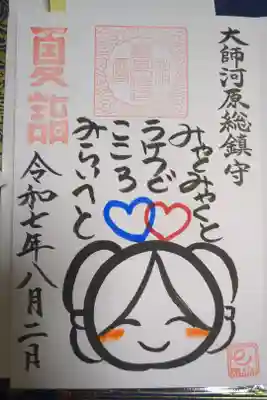 大師河原総鎮守
夏詣
みゃとみゃくと
うけつぐ
こころ
みらいへと
令和七年八月二日